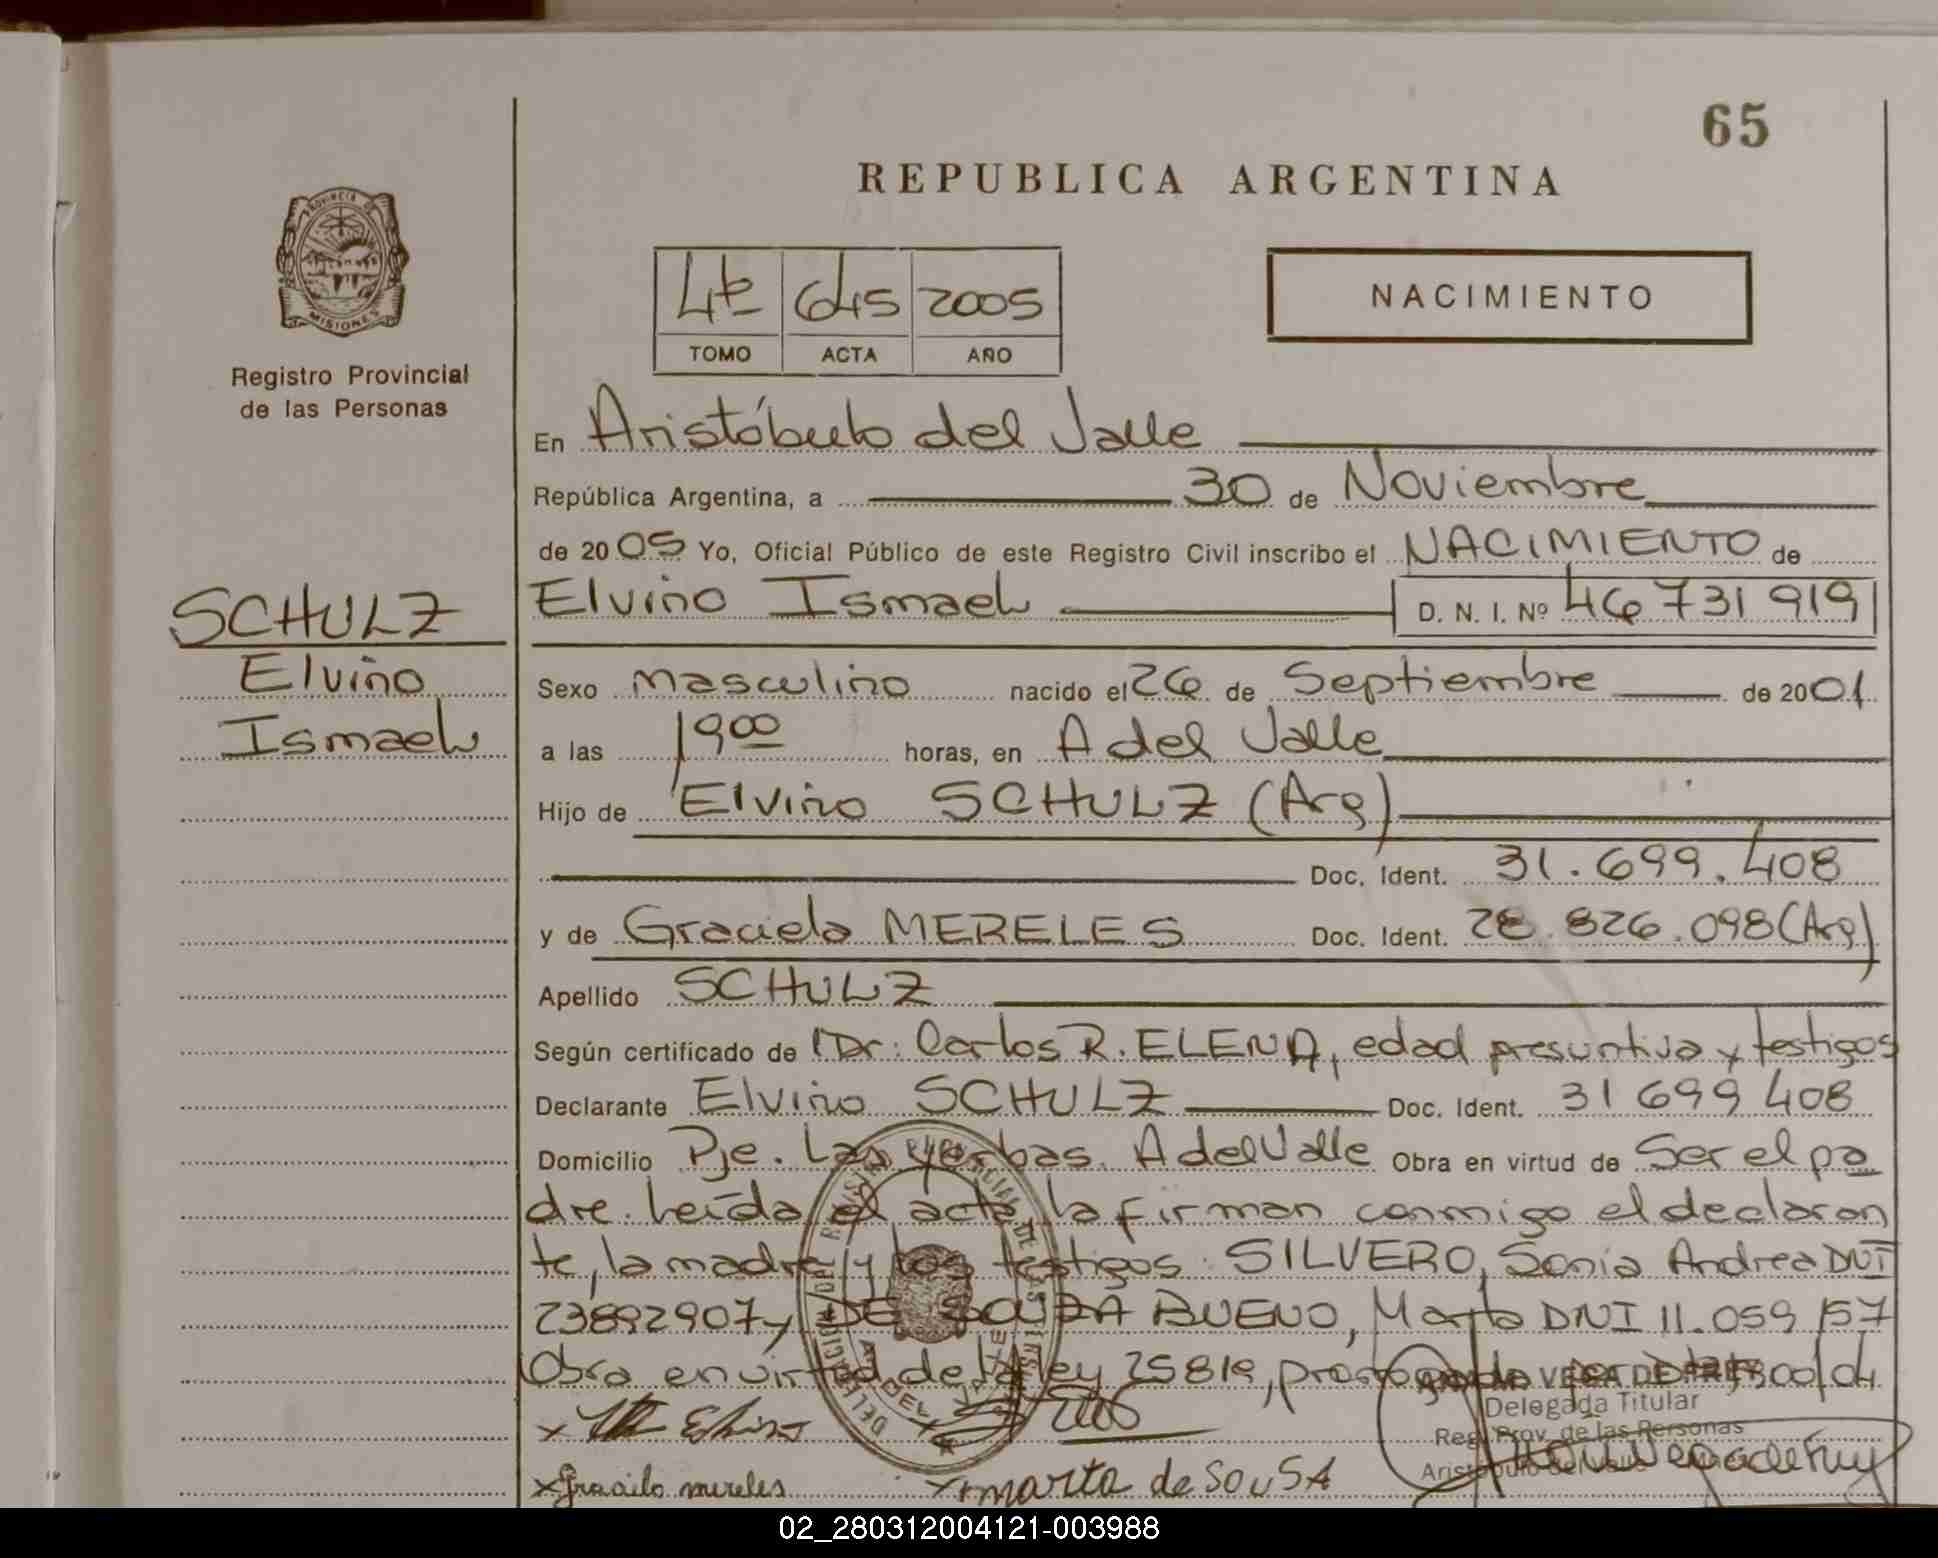 65
REPUBLICA ARGENTINA
PROVINCIA DE
MISIONES
Registro Provincial
de las Personas
4º 645 2005
TOMO ACTA AÑO
NACIMIENTO
En Aristóbulo del Valle
República Argentina, a 30 de Noviembre
de 2005 Yo, Oficial Público de este Registro Civil inscribo el NACIMIENTO de
SCHULZ
Elvino
Ismael
Elvino Ismael D. N. I. Nº 46731919
Sexo masculino nacido el 26 de Septiembre de 2001
a las 19 00 horas, en A del Valle
Hijo de Elvino SCHULZ (Arg)
Doc. Ident. 31.699.408
y de Graciela MERELES Doc. Ident. 28.826.098 (Arg)
Apellido SCHULZ
Según certificado de Dr. Carlos R. ELENA, edad presuntiva y testigos
Declarante Elvino SCHULZ Doc. Ident. 31 699 408
Domicilio Pje. Las yerbas. A del Valle Obra en virtud de Ser el pa
dre. Leída el acta la firman conmigo el declaran
te, la madre y los testigos: SILVERO, Sonia Andrea DNI
23892907 y DE SOUZA BUENO, Marta DNI 11.059.157
Obra en virtud de la ley 25819, por 300/04
VEGA DE
Delegada Titular
Reg. Prov. de las Personas
Aristóbulo del Valle
x Elvino
x Graciela mereles x marta de SOUSA
02_280312004121-003988